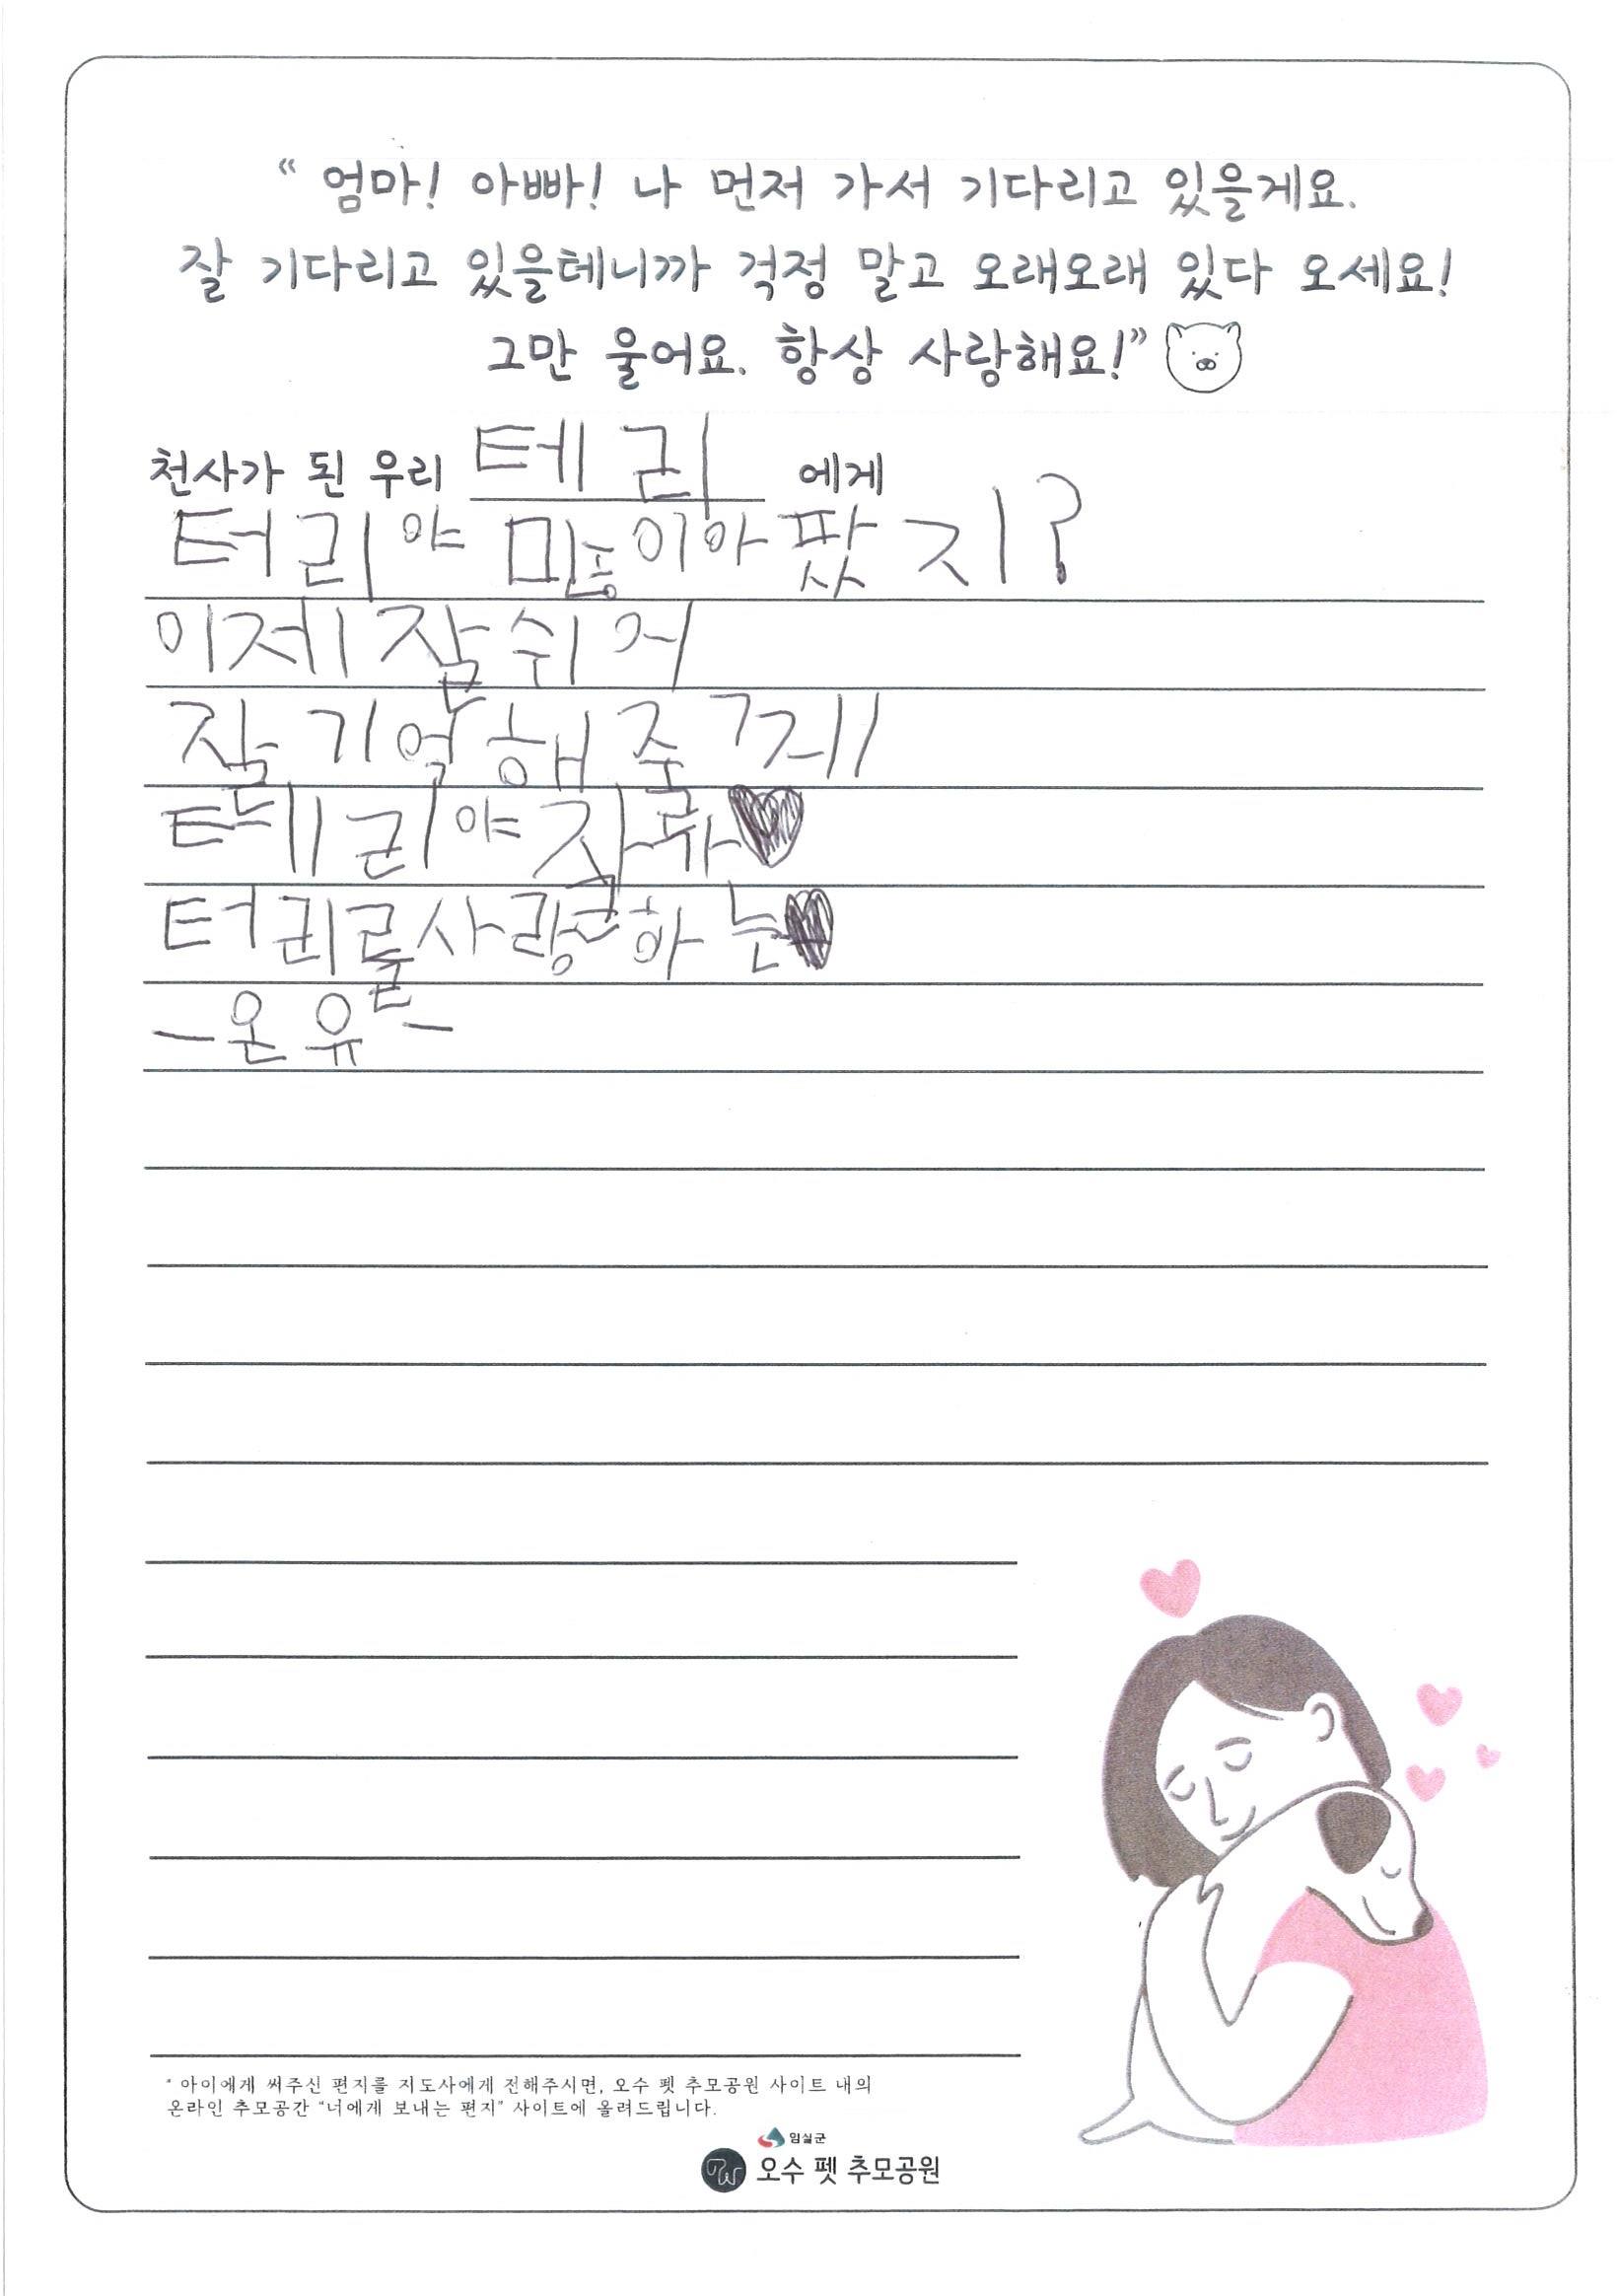 “ 엄마! 아빠! 나 먼저 가서 기다리고 있을게요.
잘 기다리고 있을테니까 걱정 말고 오래오래 있다 오세요!
그만 울어요. 항상 사랑해요!”
천사가 된 우리 테리 에게
터리야 많이아팠지?
이제잘쉬어
잘기억해줄게
테리야잘가
터리를사랑하는
-온유-
“ 아이에게 써주신 편지를 지도사에게 전해주시면, 오수 펫 추모공원 사이트 내의
온라인 추모공간 “너에게 보내는 편지” 사이트에 올려드립니다.
임실군
PW 오수 펫 추모공원